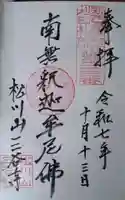 奉拝
令和七年
十月十三日
南無釈迦牟尼佛
松川山